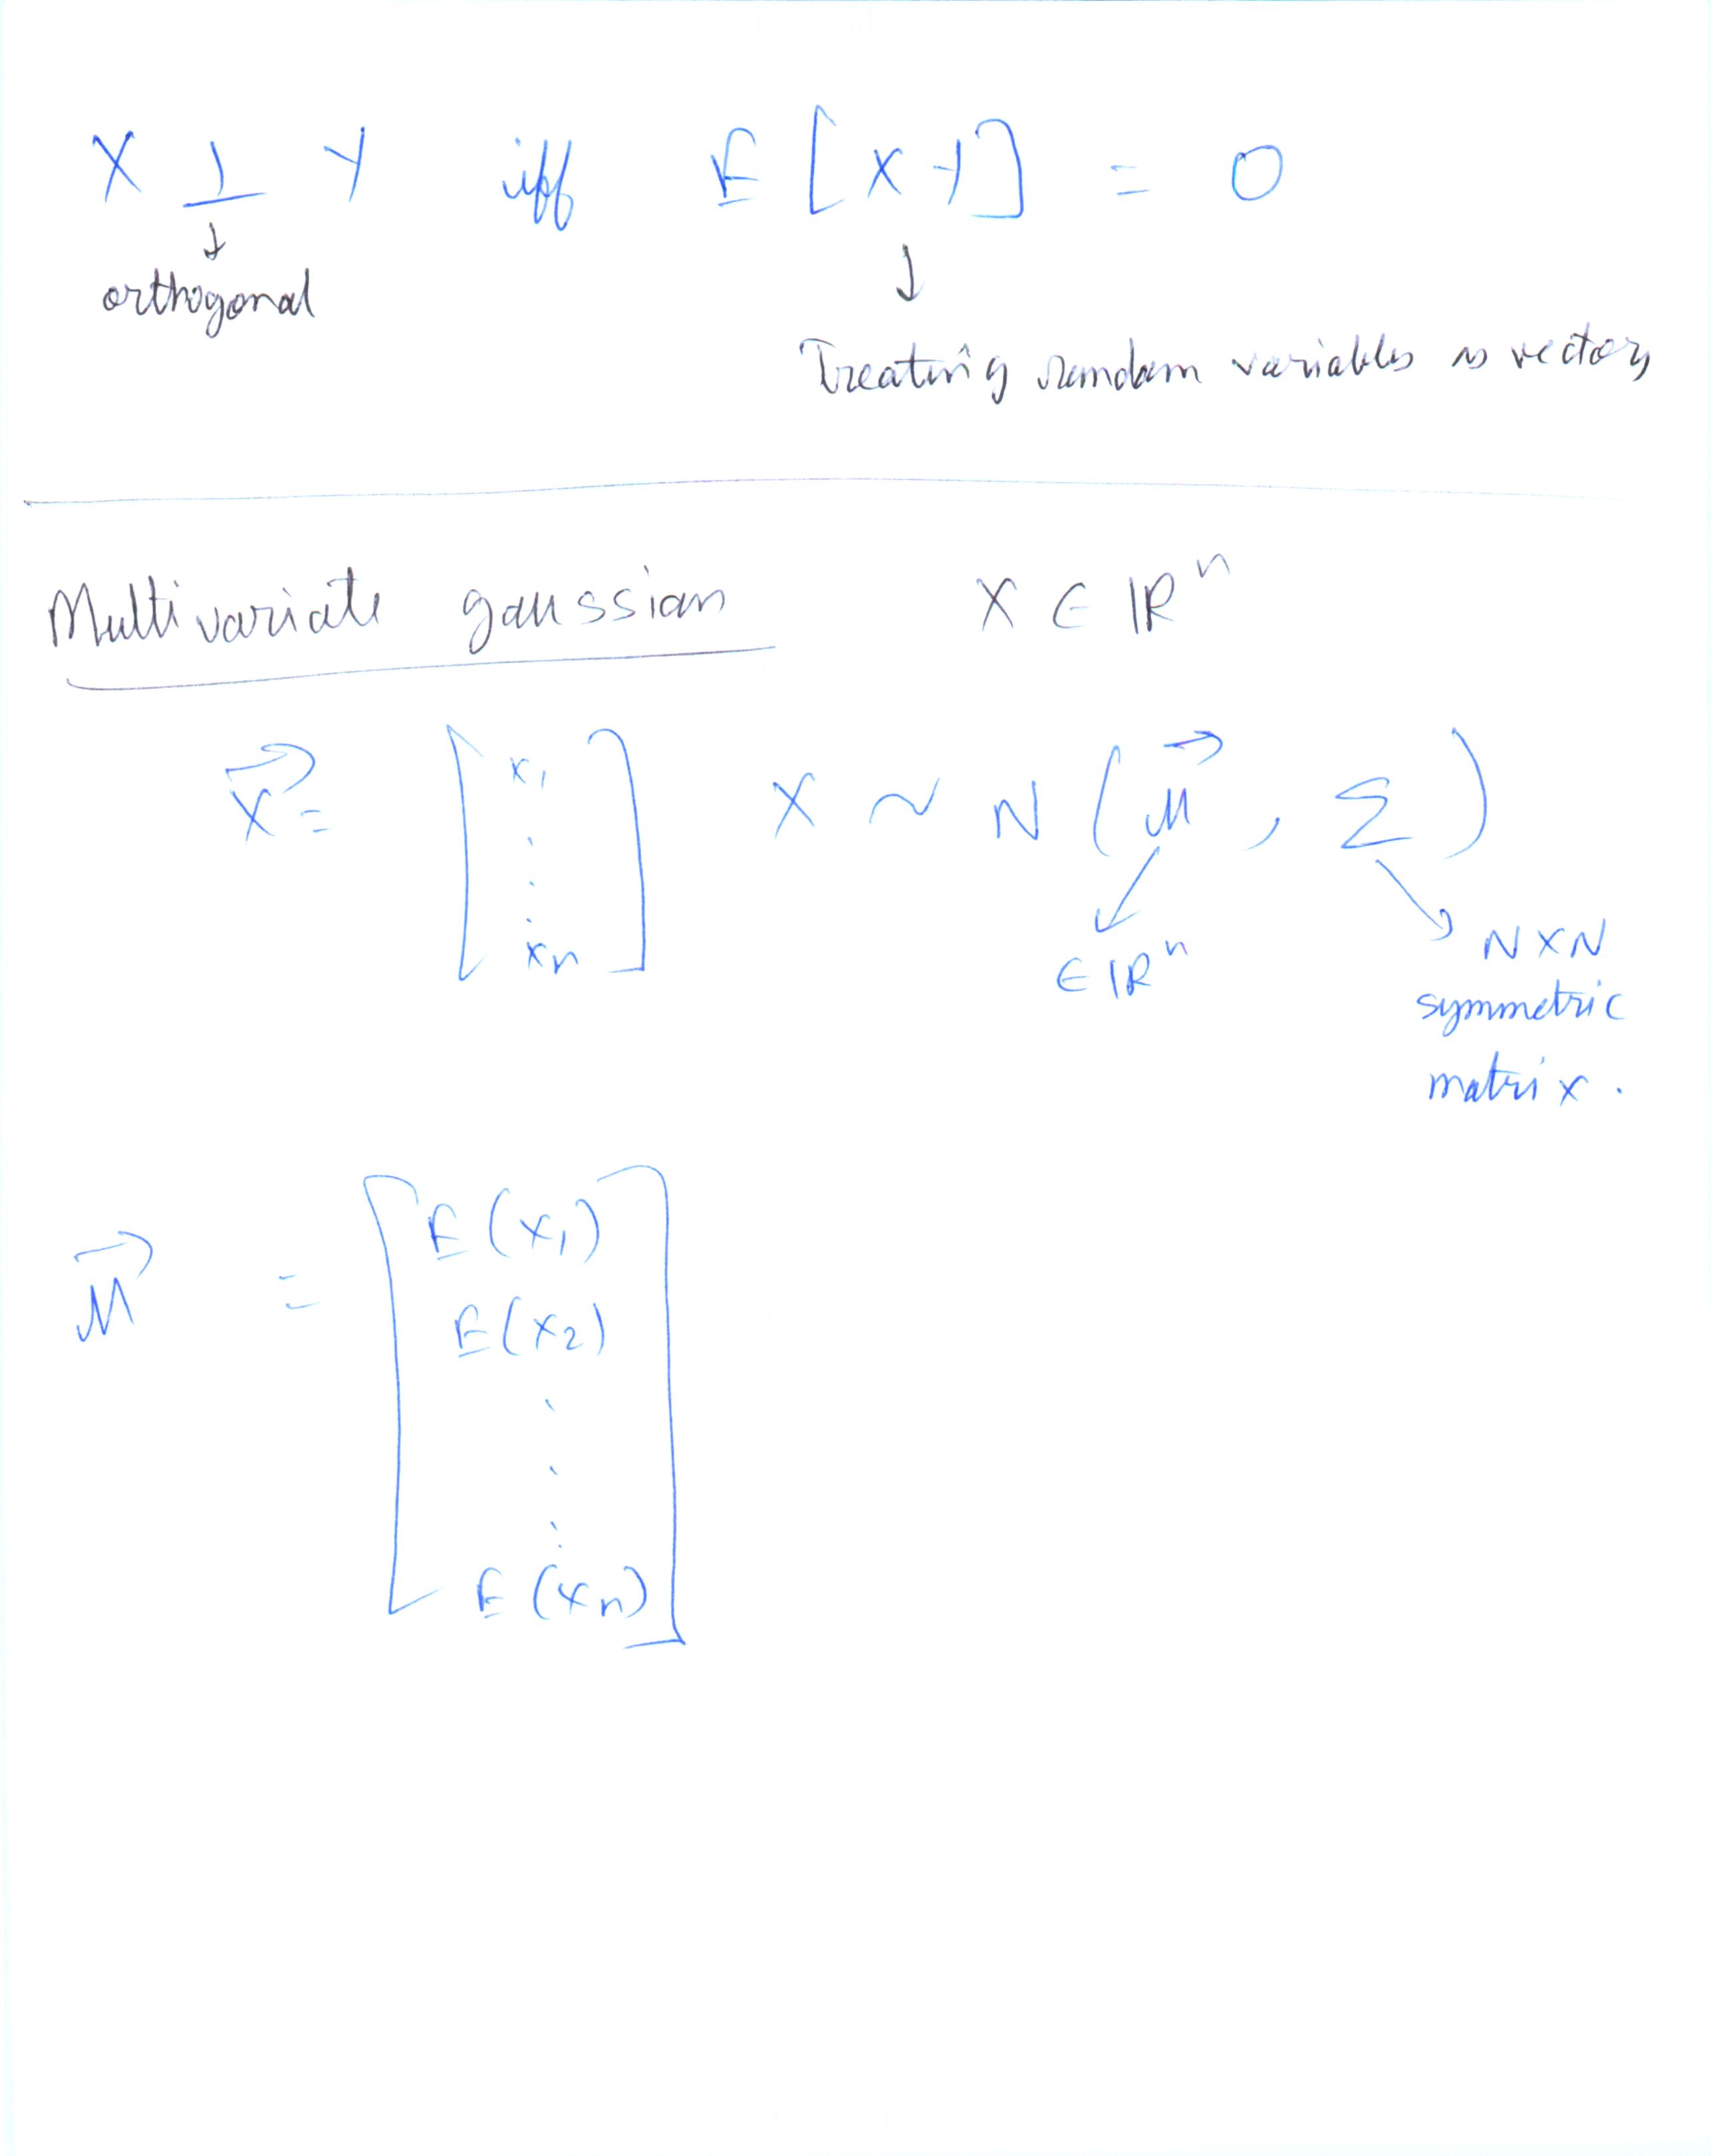 X ⊥ Y iff E[XY] = 0
↓ ↓
orthogonal
Treating random variables as vectors
Multivariate gaussian X ∈ ℝⁿ
X⃗ = [x₁ . . . xₙ] X ~ N(μ⃗, Σ)
∈ ℝⁿ
N×N
symmetric
matrix.
μ⃗ =
E(x₁)
E(x₂)
.
.
.
E(xₙ)